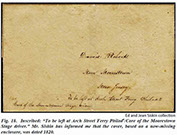 Ed and Jean Siskin collection
David Roberts
Near Moorestown
New Jersey
To be left at Arch Street Ferry Philad<sup>a</sup>
Care of the Moorestown Stage driver
Fig. 18. Inscribed: "To be left at Arch Street Ferry Philad<sup>a</sup> Care of the Moorestown
Stage driver." Mr. Siskin has informed me that the cover, based on a now-missing
enclosure, was dated 1820.